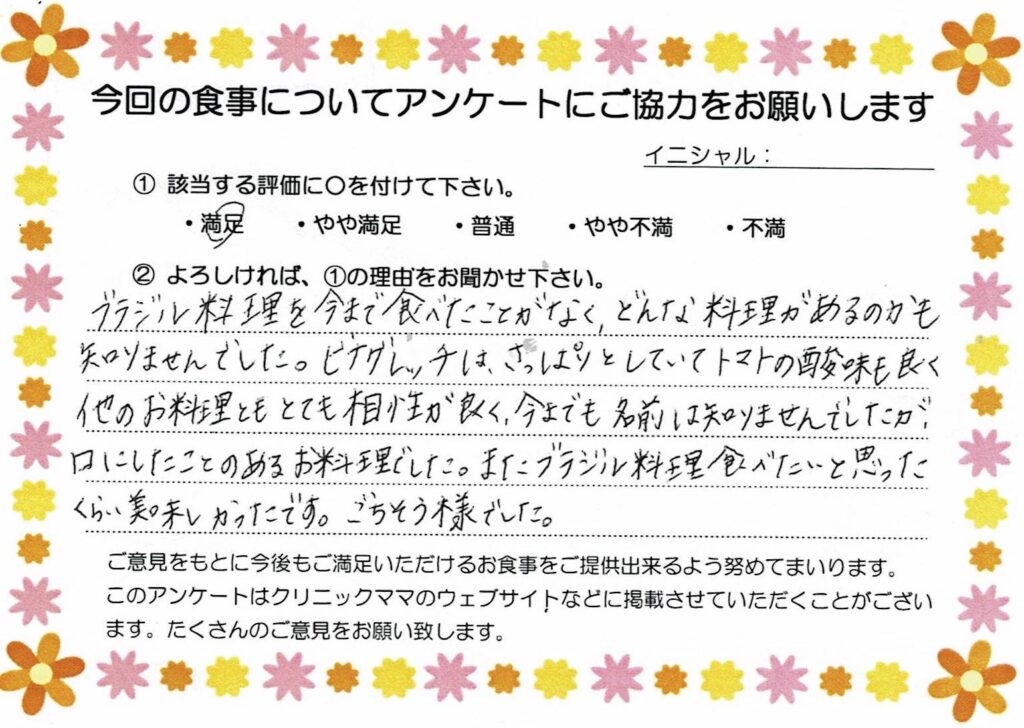 今回の食事についてアンケートにご協力をお願いします
イニシャル：
① 該当する評価に○を付けて下さい。
・満足 ・やや満足 ・普通 ・やや不満 ・不満
② よろしければ、①の理由をお聞かせ下さい。
ブラジル料理を今まで食べたことがなく、どんな料理があるのかも
知りませんでした。ビナグレッチは、さっぱりとしていてトマトの酸味も良く
他のお料理ともとても相性が良く、今までも名前は知りませんでしたが、
口にしたことのあるお料理でした。またブラジル料理食べたいと思った
くらい美味しかったです。ごちそう様でした。
ご意見をもとに今後もご満足いただけるお食事をご提供出来るよう努めてまいります。
このアンケートはクリニックママのウェブサイトなどに掲載させていただくことがござい
ます。たくさんのご意見をお願い致します。